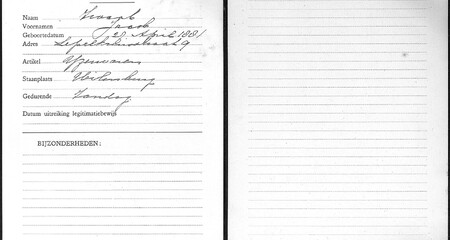 Naam
Voornamen Jacob
Geboortedatum 20 April 1881
Adres 9
Artikel IJzerwaren
Staanplaats Uilenburg
Gedurende Zondag
Datum uitreiking legitimatiebewijs
BIJZONDERHEDEN: